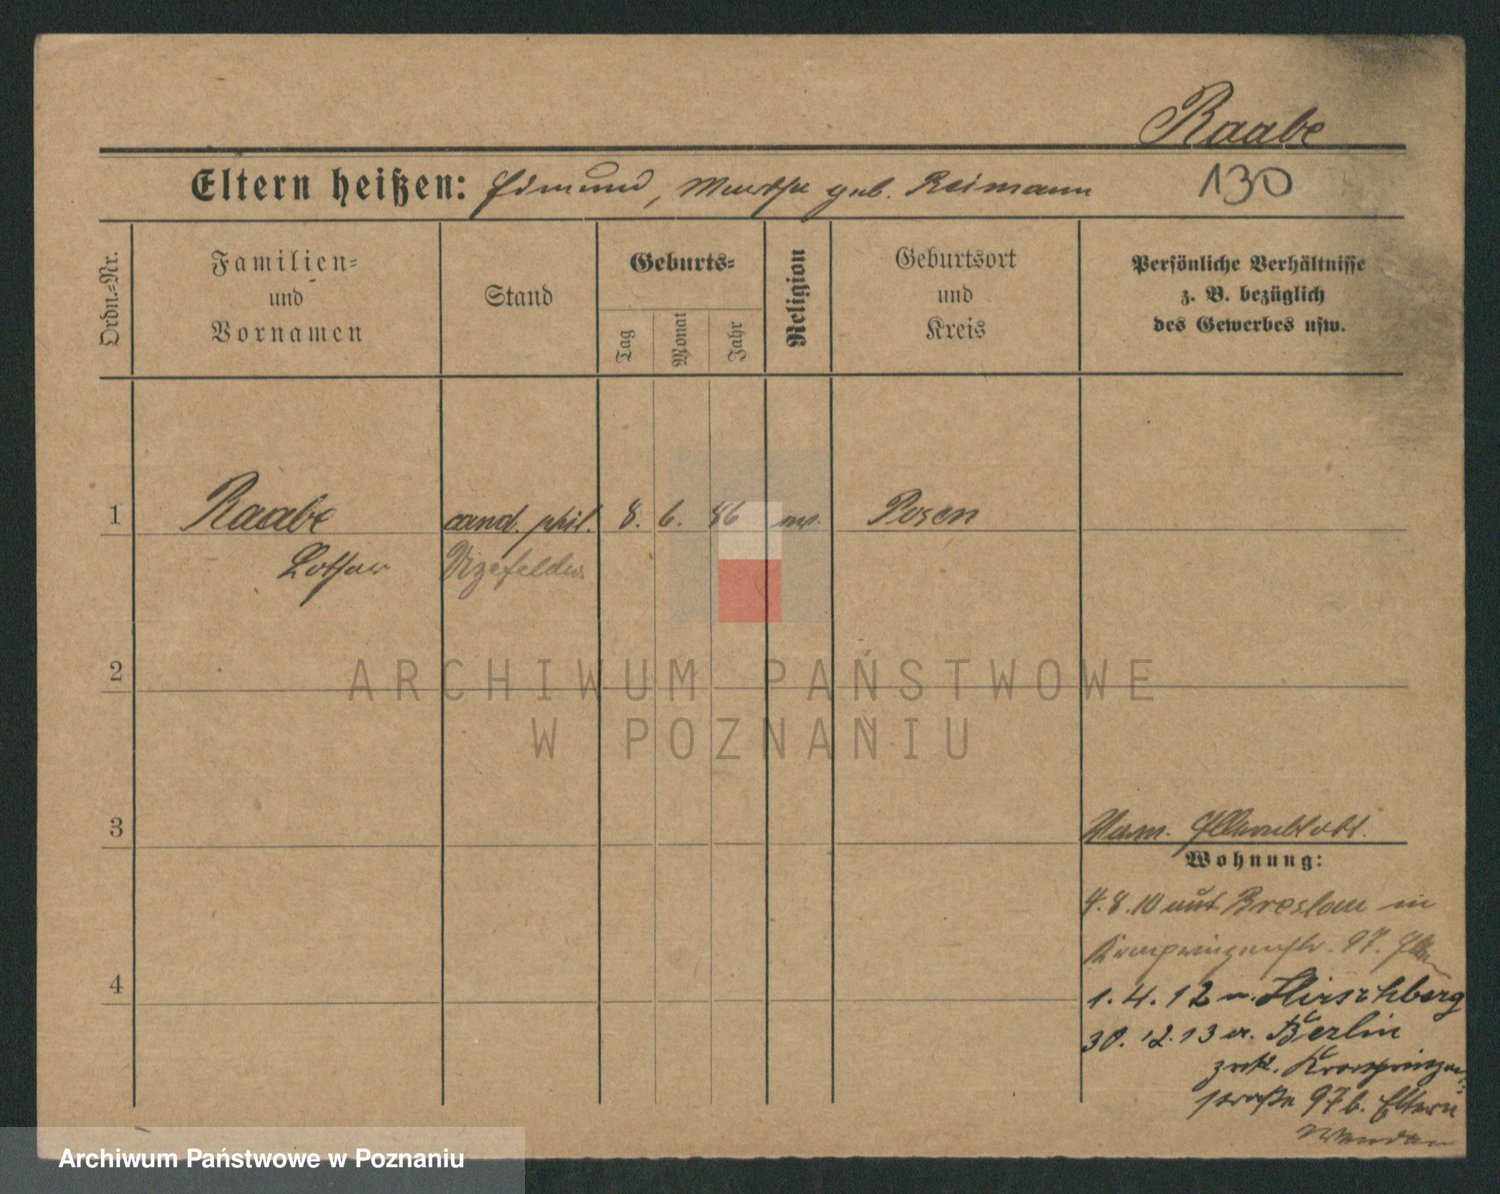 Raabe
Eltern heißen: Edmund, Martha geb. Reimann 130
Ordn.=Nr.
Familien=
und
Vornamen
Stand
Geburts=
Tag
Monat
Jahr
Religion
Geburtsort
und
Kreis
Persönliche Verhältnisse
z. B. bezüglich
des Gewerbes usw.
1 Raabe cand. phil. 8. 6. 86 Posen
Lothar Vizefeldw.
2
ARCHIWUM PAŃSTWOWE
W POZNANIU
3
Wohnung:
4.8.10 aus Breslau in
Kronprinzenstr. 97.
4
1.4.12 n. Hirschberg
30.12.13 Berlin
zurk. Kronprinzen-
straße 97b. Eltern
Archiwum Państwowe w Poznaniu